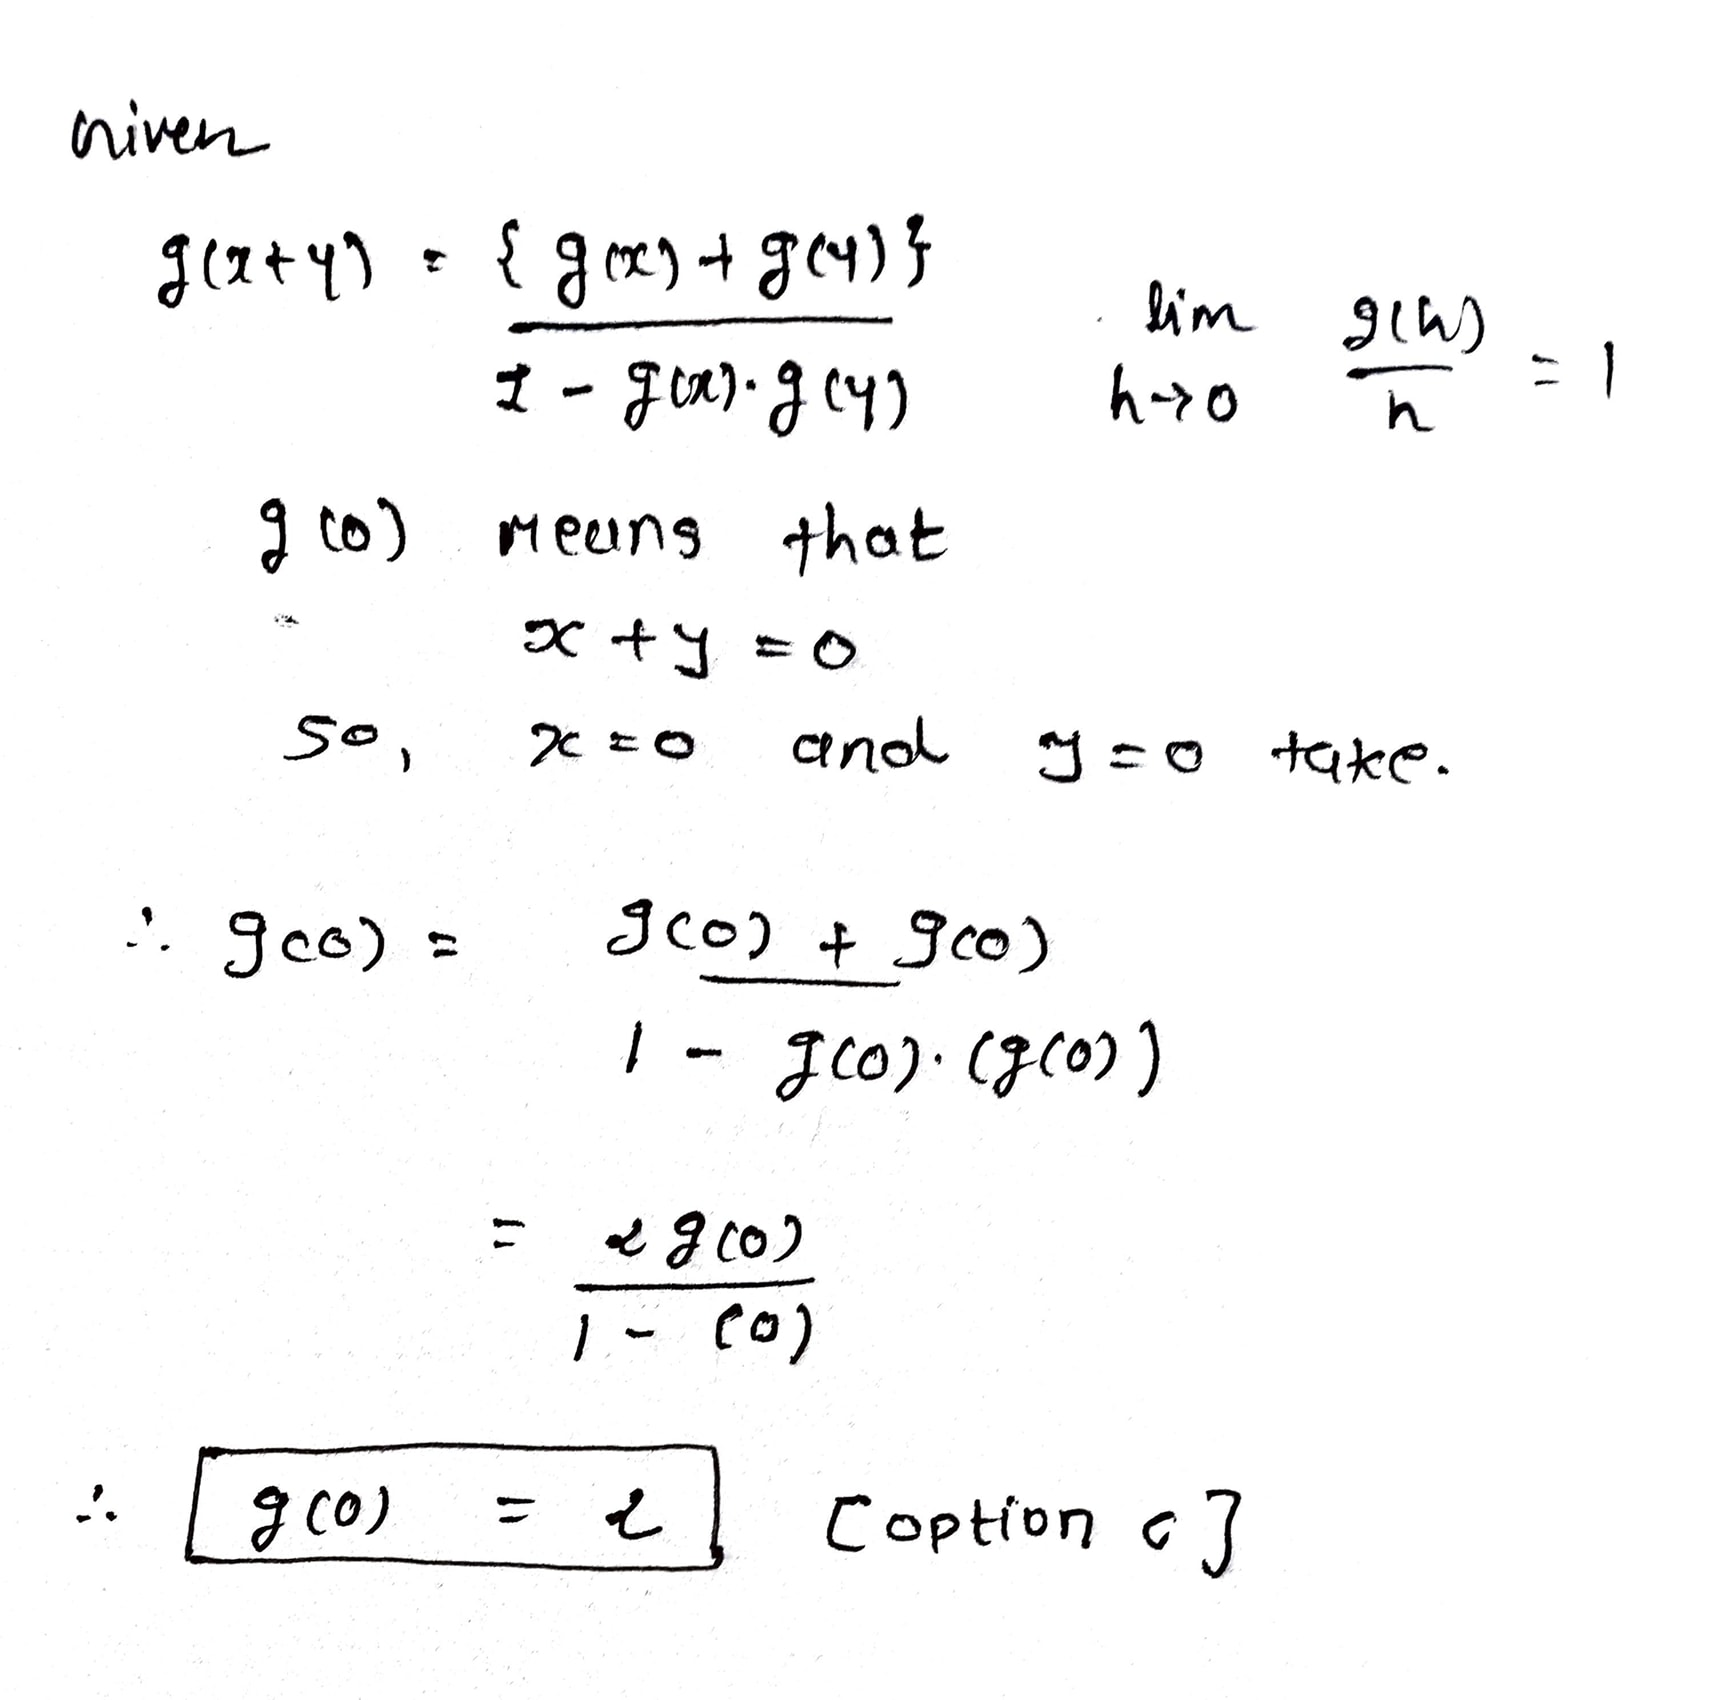 Given
g(x+y) = {g(x) + g(y)}
1 - g(x)·g(y)
lim g(h) = 1
h→0 h
g(0) means that
x + y = 0
so, x = 0 and y = 0 take.
∴ g(0) = g(0) + g(0)
1 - g(0)·(g(0))
= 2g(0)
1 - (0)
∴ g(0) = 2 [option c]